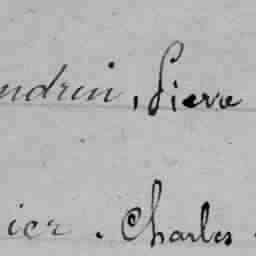 ndrin, Pierre
ier. Charles.